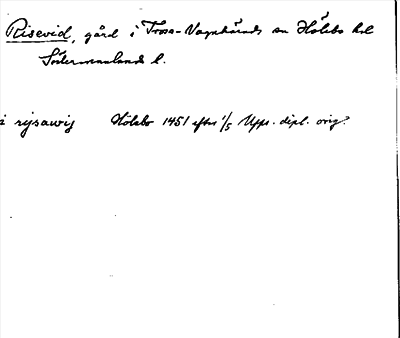 Risevid, gård i Trosa-Vagnhärads sn Hölebo hd
Södermanlands l.
i rysawiy Hölebo 1451 efter 1/5 Upps. dipl. orig.